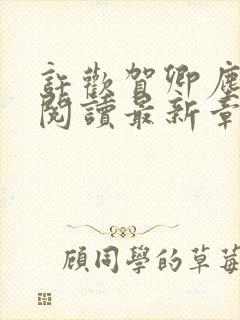 許歡賀卿塵
閱讀最新章
顾同學的草莓